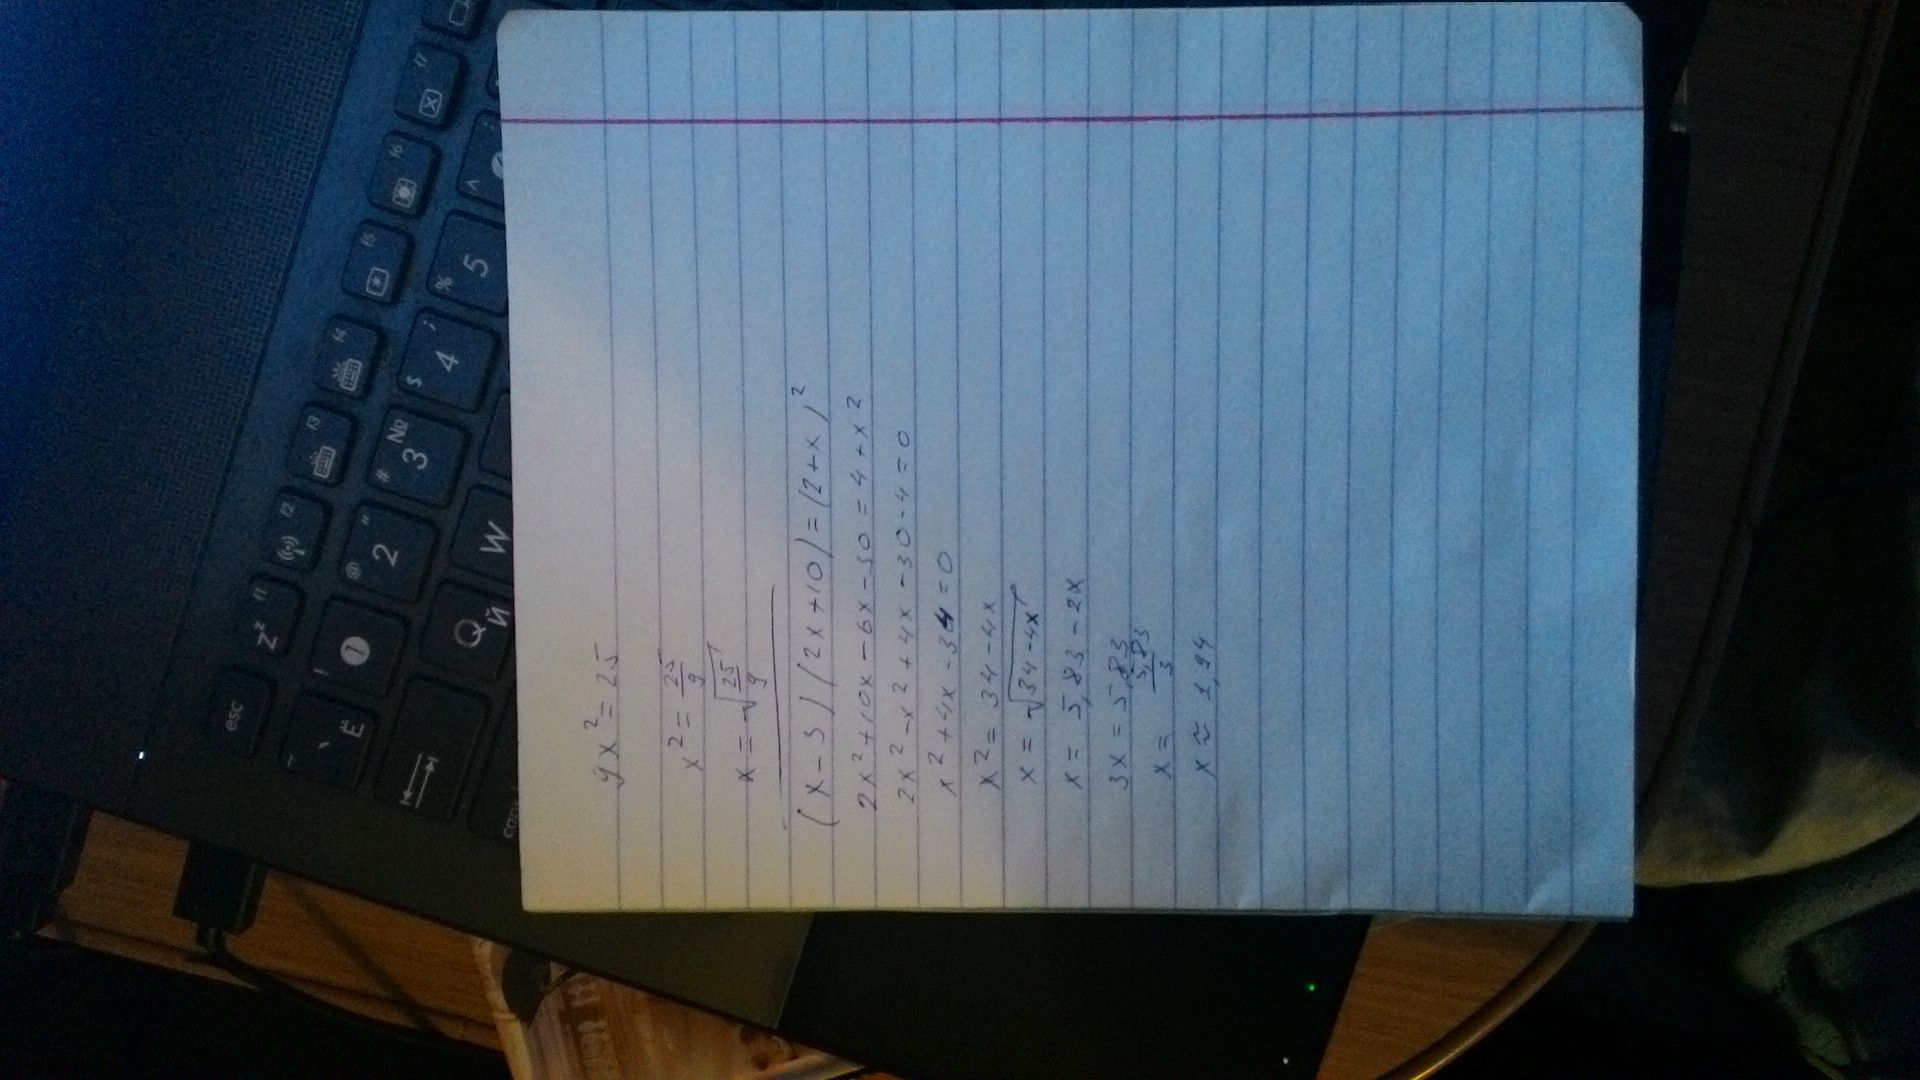 9x² = 25
x² = 25/9
x = √25/9
(x-3)(2x+10)=(2+x)²
2x²+10x-6x-30=4+x²
2x²-x²+4x-30-4=0
x²+4x-34=0
x²=34-4x
x=√34-4x
x=5,83-2x
3x=5,83
x=5,83/3
x≈1,94
esc
z² f1
f2
f3
f4
f5
f6
f7
` Ё
! 1
@ " 2
# № 3
$ ; 4
% 5
Q Й
W